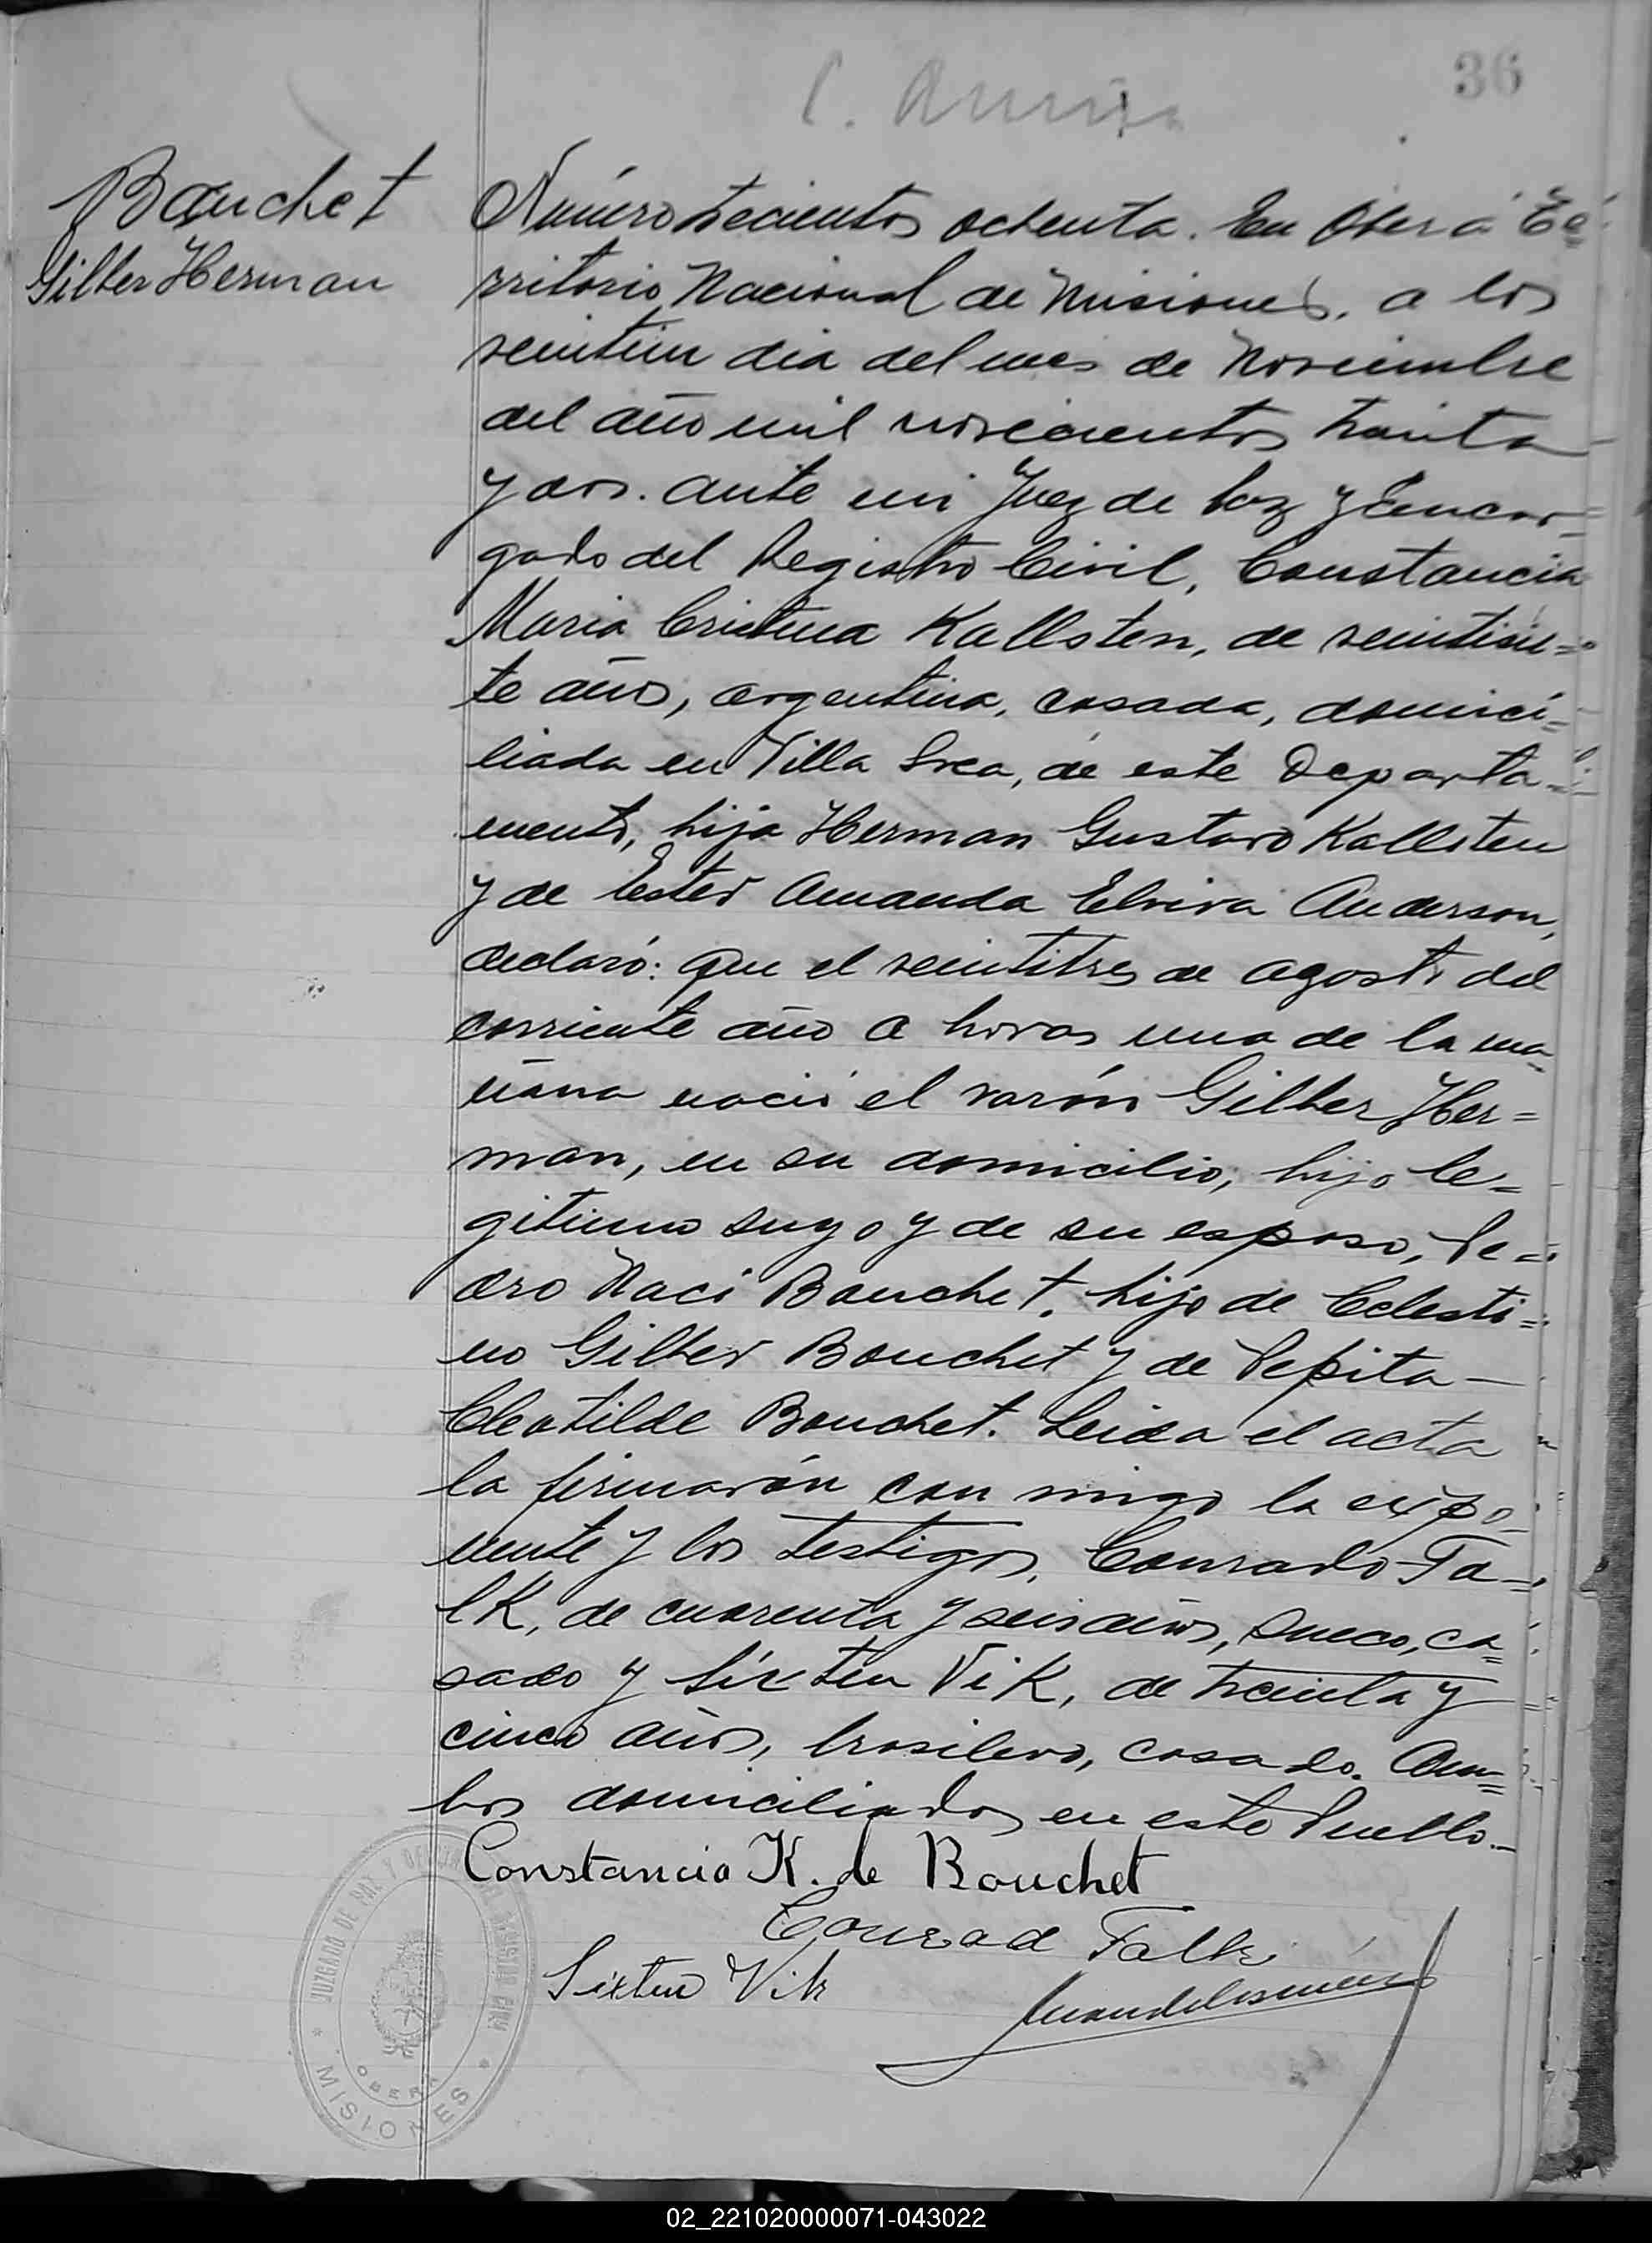 36
Bouchet
Gilber Herman
Número trecientos ochenta. En Oberá Te=
rritorio Nacional de Misiones, a los
veintiun dia del mes de Noviembre
del año mil novecientos treinta
y dos. ante mi Juez de Paz y Encar=
gado del Registro Civil, Constancia
Maria Cristina Kallsten, de veintisie=
te años, argentina, casada, domici=
liada en Villa Svea, de este Departa=
mento, hija Herman Gustavo Kallsten
y de Ester Amanda Elvira Anderson,
declaró: que el veintitres de agosto del
corriente año a horas una de la ma=
ñana nació el varón Gilber Her=
man, en su domicilio, hijo le=
gitimo suyo y de su esposo, Pe=
dro Naci Bouchet, hijo de Celesti=
no Gilber Bouchet y de Pepita
Cleotilde Bouchet. Leida el acta
la firmarón con migo la expo-
nente y los testigos, Conrado Fa=
lk, de cuarenta y seis años, sueco, ca=
sado y Sixten Vik, de treinta y
cinco años, brasilero, casado. Am=
bos domiciliados en este Pueblo.-
Constancia K. de Bouchet
Conrad Falk
Sixten Vik
JUZGADO DE PAZ Y
REGISTRO CIVIL
OBERA
* MISIONES *
02_221020000071-043022